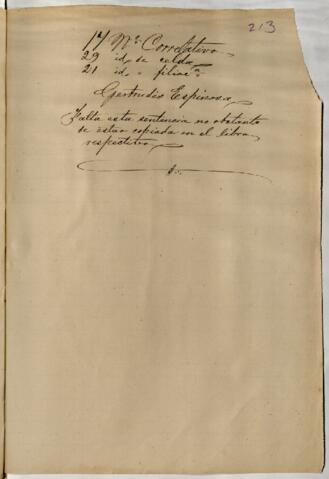 213
17 Nº Correlativo
29 id. de celda
21 id. " filiac.n
Gertrudis Espinosa
Falta esta sentencia no obstante
de estar copiada en el libro
respectivo